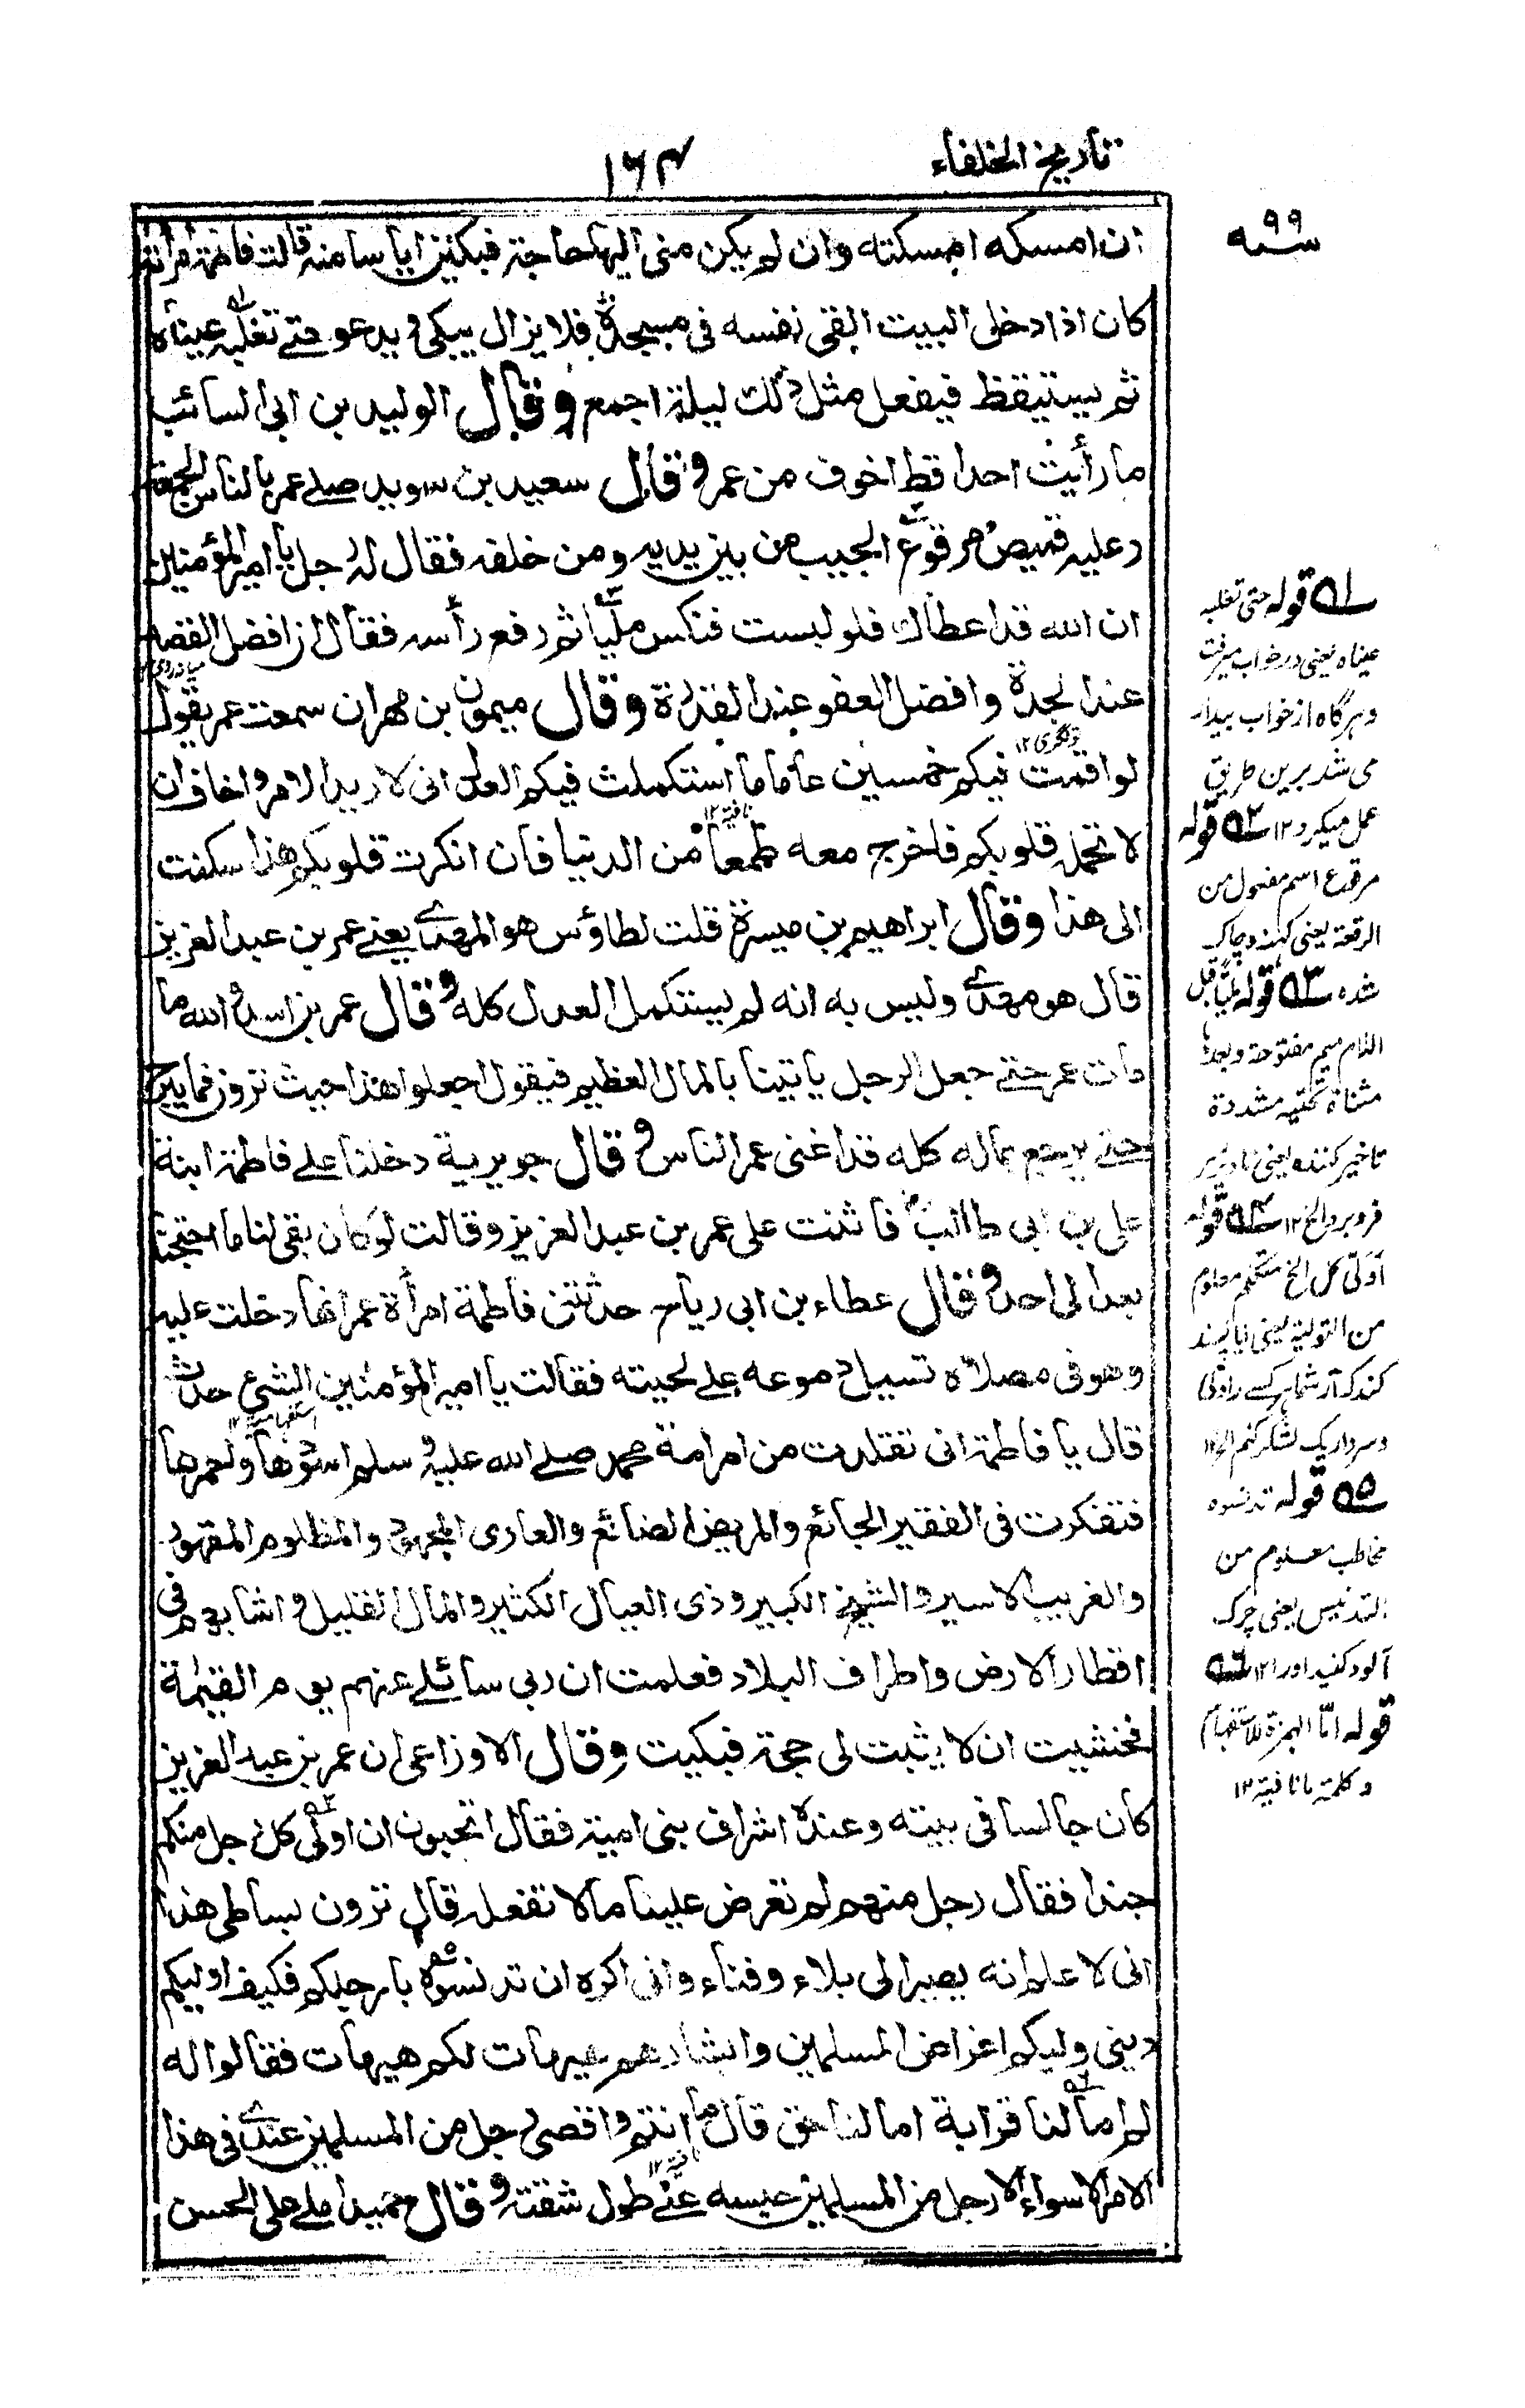 تاريخ الخلفاء
١٦٤
سنه ٩٩
ان امسكه امسكته وان لم يكن منى اليها حاجة فبكين اياسا منه قالت فاطمة امرأته
كان اذا دخل البيت القى نفسه فى مسجده فلا يزال يبكى ويدعو حتے تغلبه عيناه
ثم يستيقظ فيفعل مثل ذلك ليلة اجمع وقال الوليد بن ابى السائب
ما رأيت احدا قط اخوف من عمر وقال سعيد بن سويد صلے عمر بالناس الجمعة
وعليه قميص مرقوع الجيب من بين يديه ومن خلفه فقال له رجل يا امير المؤمنين
ان الله قد اعطاك فلو لبست فنكس مليّا ثم رفع رأسه فقال ان افضل القصد
عند الجدة وافضل العفو عند القدرة وقال ميمون بن مهران سمعت عمر يقول
لو اقمت فيكم خمسين عاما ما استكملت فيكم العدل انى لا ريد الامر واخاف ان
لا تحمله قلوبكم فاخرج معه طمعا من الدنيا فان انكرت قلوبكم هذا سكنت
الى هذا وقال ابراهيم بن ميسرة قلت لطاؤس هو المهدے يعنے عمر بن عبد العزيز
قال هو مهدے وليس به انه لم يستكمل العدل كله وقال عمر بن اسد والله ما
مات عمر حتے جعل الرجل ياتينا بالمال العظيم فيقول اجعلوا هذا حيث ترون فما يبرح
حتے يرجع بماله كله قد اغنى عمر الناس وقال جويرية دخلنا علے فاطمة ابنة
على بن ابى طالب فاثنت على عمر بن عبد العزيز وقالت لو كان بقى لنا ما احتجنا
بعد الى احد وقال عطاء بن ابى رباح حدثتنى فاطمة امرأة عمر انها دخلت عليه
وهو فى مصلاه تسيل دموعه علے لحيته فقالت يا امير المؤمنين الشئ حدث
قال يا فاطمة انى تقلدت من امر امة محمد صلے الله عليه وسلم اسودها واحمرها
فتفكرت فى الفقير الجائع والمريض الضائع والعارى المجهود والمظلوم المقهور
والغريب الاسير والشيخ الكبير وذى العيال الكثير والمال القليل واشباههم فى
اقطار الارض واطراف البلاد فعلمت ان ربى سائلے عنهم يوم القيمة
فخشيت ان لا يثبت لى حجة فبكيت وقال الاوزاعى ان عمر بن عبد العزيز
كان جالسا فى بيته وعنده اشراف بنى امية فقال اتحبون ان اولّى كل رجل منكم
جندا فقال رجل منهم لم تعرض علينا ما لا تفعله قال ترون بساطى هذا
انى لاعلم انه يصير الى بلاء وفناء وانى اكره ان تدنسوه بارجلكم فكيف اوليكم
دينى واوليكم اعراض المسلمين وابشارهم هيهات لكم هيهات فقالوا له
لم اما لنا قرابة اما لنا حق قال ما انتم واقصى رجل من المسلمين عندے فى هذا
الامر الا سواء الا رجل من المسلمين حبسه عنے طول شقته وقال حميد املے على الحسن
٥١ قوله حتى تغلبه
عيناه يعنى در خواب ميرفت
وهرگاه از خواب بيدار
مى شد برين طريق
عمل ميكرد ١٢ ٥٢ قوله
مرقوع اسم مفعول من
الرقعة يعنى كهنه وچاک
شده ٥٣ قوله مليّا قبل
اللام ميم مفتوحة وبعدها
مثناة تحتيه مشددة
تاخير كننده يعنى تا دير سر
فرو برد الخ ١٢ ٥٤ قوله
اولّى كل الخ متكلم معلوم
من التولية يعنى آيا پسند
كنيد كه از شما هر كسے را والى
وسردار يک لشكر كنم الخ ١٢
٥٥ قوله تدنسوه
مخاطب معلوم من
التدنيس يعنى چرک
آلود كنيد او را ١٢ ٥٦
قوله امّا الهمزة للاستفهام
وكلمة ما نافية ١٢